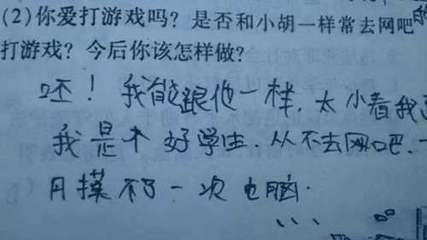 (2)你爱打游戏吗?是否和小胡一样常去网吧
打游戏?今后你该怎样做?
呸!我能跟他一样,太小看我
我是个好学生.从不去网吧.一
月摸不了一次电脑.